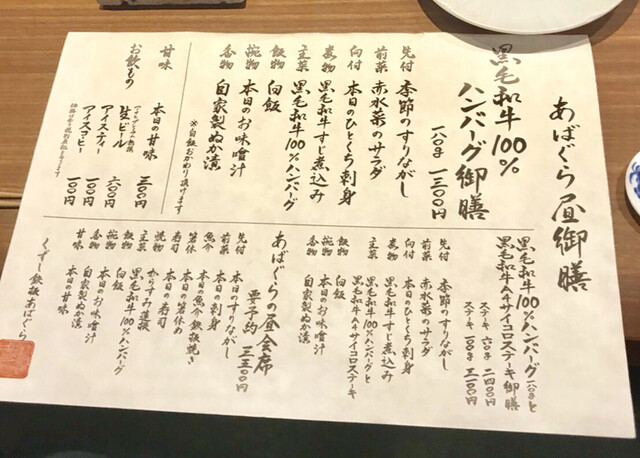 あばぐら昼御膳
黒毛和牛100%
ハンバーグ御膳
一八〇g 一三〇〇円
先付 季節のすりながし
前菜 赤水菜のサラダ
向付 本日のひとくち刺身
煮物 黒毛和牛すじ煮込み
主菜 黒毛和牛100%ハンバーグ
飯物 白飯
椀物 本日のお味噌汁
香物 自家製ぬか漬
※白飯おかわり頂けます
甘味
本日の甘味 三〇〇円
お飲もの
生ビール 六〇〇円
アイスティー 一〇〇円
アイスコーヒー 一〇〇円
黒毛和牛100%ハンバーグ一八〇gと
黒毛和牛A4サイコロステーキ御膳
ステーキ 六〇g 二四〇〇円
ステーキ 一〇〇g 三一〇〇円
先付 季節のすりながし
前菜 赤水菜のサラダ
向付 本日のひとくち刺身
煮物 黒毛和牛すじ煮込み
主菜 黒毛和牛100%ハンバーグと
黒毛和牛A4サイコロステーキ
飯物 白飯
椀物 本日のお味噌汁
香物 自家製ぬか漬
あばぐらの昼会席
要予約 三五〇〇円
先付 本日のすりながし
前菜 本日の刺身
魚介 本日の魚介鉄板焼き
箸休 本日の箸休め
寿司 本日の寿司
焼物 からすみ蓮根
主菜 黒毛和牛100%ハンバーグ
飯物 白飯
椀物 本日のお味噌汁
香物 自家製ぬか漬
甘味 本日の甘味
くずし鉄板あばぐら